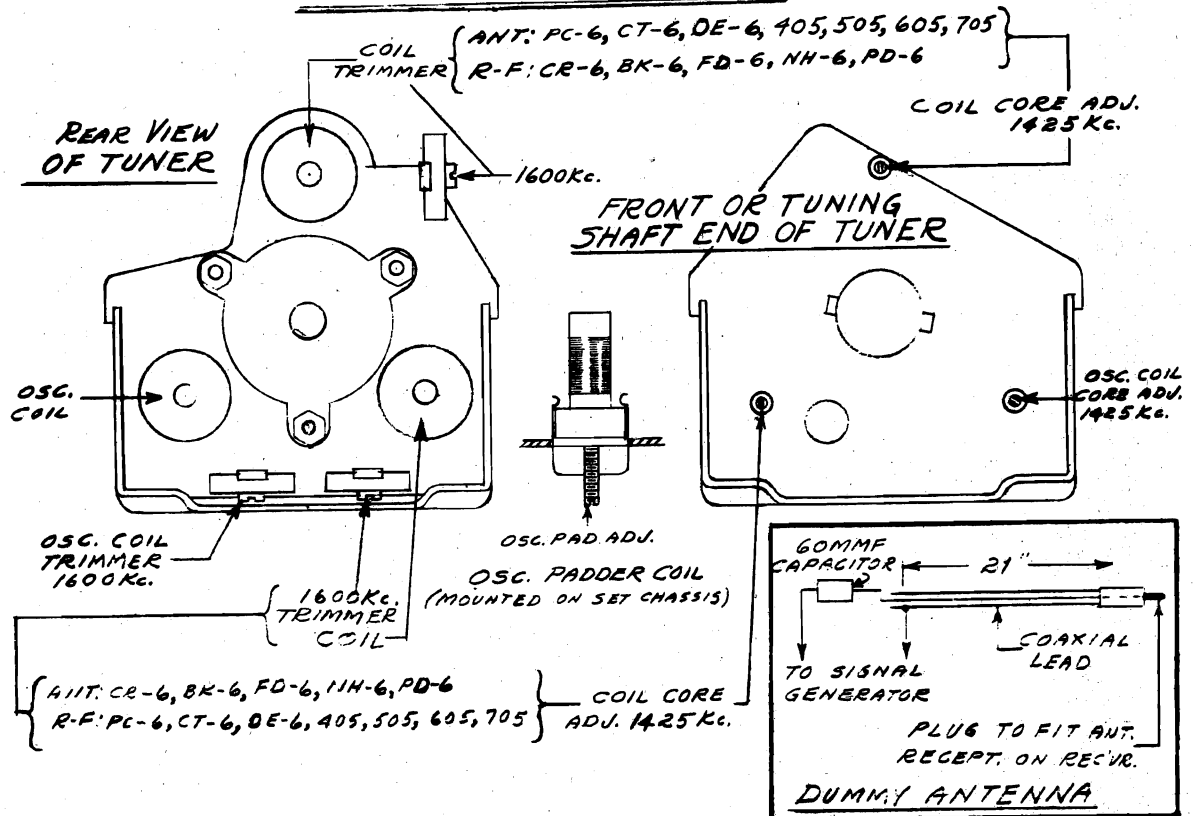 COIL TRIMMER
ANT: PC-6, CT-6, DE-6, 405, 505, 605, 705
R-F: CR-6, BK-6, FD-6, NH-6, PD-6
COIL CORE ADJ.
1425 Kc.
REAR VIEW
OF TUNER
1600Kc.
FRONT OR TUNING
SHAFT END OF TUNER
OSC.
COIL
OSC. COIL
CORE ADJ.
1425 Kc.
OSC. COIL
TRIMMER
1600Kc.
OSC. PAD. ADJ.
OSC. PADDER COIL
(MOUNTED ON SET CHASSIS)
1600Kc.
TRIMMER
COIL
ANT: CR-6, BK-6, FD-6, NH-6, PD-6
R-F: PC-6, CT-6, DE-6, 405, 505, 605, 705
COIL CORE
ADJ. 1425 Kc.
60MMF
CAPACITOR
21"
COAXIAL
LEAD
TO SIGNAL
GENERATOR
PLUG TO FIT ANT.
RECEPT. ON REC'VR.
DUMMY ANTENNA